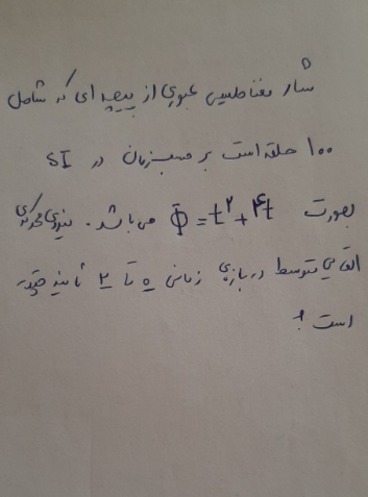 شار مغناطیسی عبوری از پیچه ای که شامل
۱۰۰ حلقه است بر حسب زمان در SI
بصورت Φ = t² + ۴t می باشد. نیروی محرکه‌ی
القایی متوسط در بازه‌ی زمانی ۰ تا ۲ ثانیه چقدر
است؟